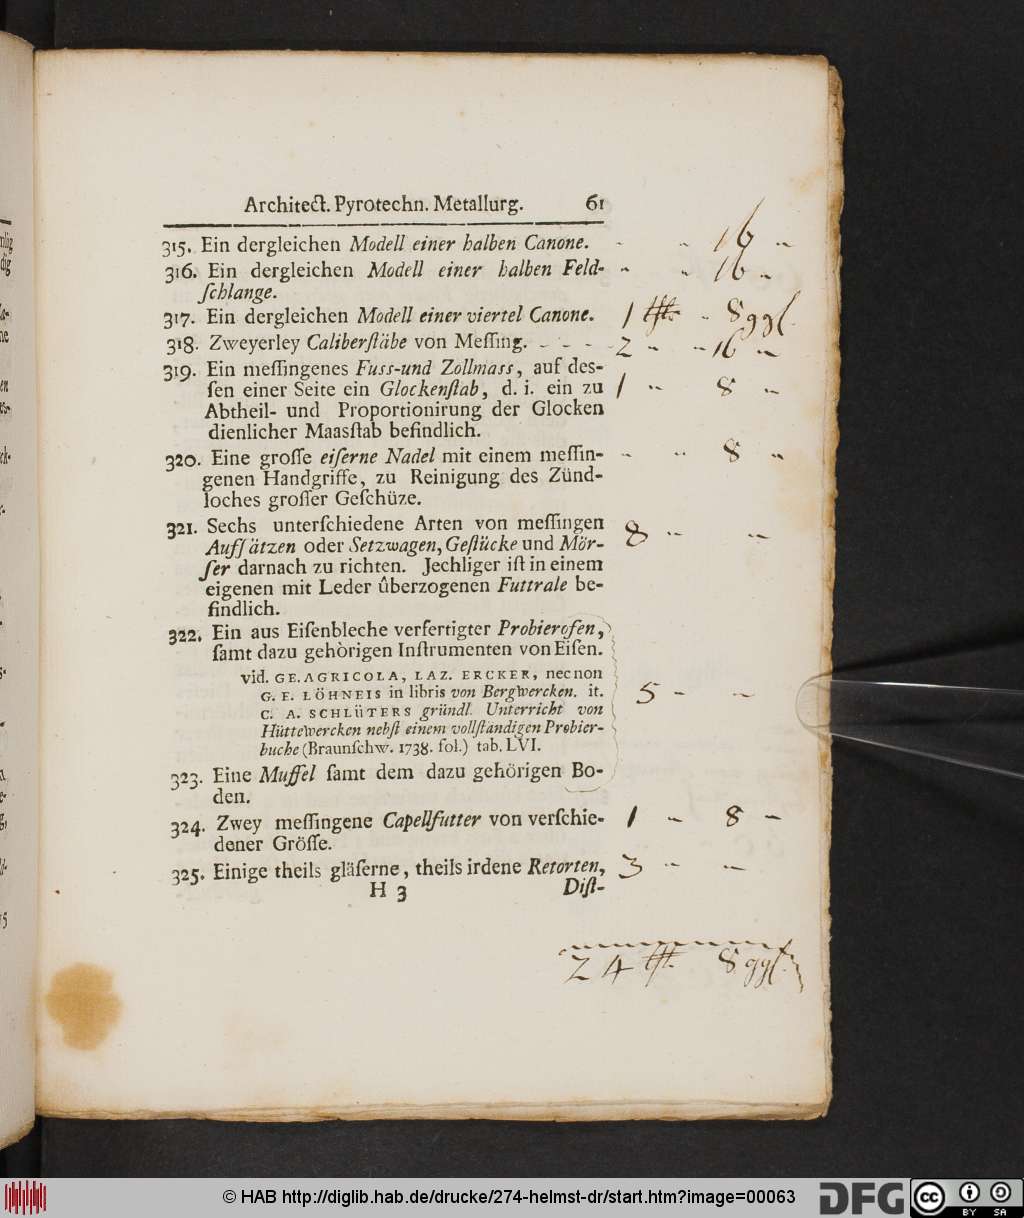 Architect. Pyrotechn. Metallurg. 61
315. Ein dergleichen Modell einer halben Canone. - - 16 -
316. Ein dergleichen Modell einer halben Feld- - - 16 -
ſchlange.
317. Ein dergleichen Modell einer viertel Canone. 1 - 8 ggl.
318. Zweyerley Caliberſtäbe von Meſſing. - - - - 2 - - 16 -
319. Ein meſſingenes Fuss-und Zollmass, auf des-
ſen einer Seite ein Glockenſtab, d. i. ein zu 1 - 8 -
Abtheil- und Proportionirung der Glocken
dienlicher Maasſtab befindlich.
320. Eine groſſe eiſerne Nadel mit einem meſſin- - - 8 -
genen Handgriffe, zu Reinigung des Zünd-
loches groſſer Geſchüze.
321. Sechs unterſchiedene Arten von meſſingen
Aufſätzen oder Setzwagen, Geſtücke und Mör- 8 - -
ſer darnach zu richten. Jechliger iſt in einem
eigenen mit Leder ûberzogenen Futtrale be-
findlich.
322. Ein aus Eiſenbleche verfertigter Probierofen,
ſamt dazu gehörigen Inſtrumenten von Eiſen.
vid. GE. AGRICOLA, LAZ. ERCKER, nec non
G. E. LÖHNEIS in libris von Bergwercken. it. 5 - -
C. A. SCHLÜTERS gründl. Unterricht von
Hüttewercken nebſt einem vollſtandigen Probier-
buche (Braunſchw. 1738. fol.) tab. LVI.
323. Eine Muffel ſamt dem dazu gehörigen Bo-
den.
324. Zwey meſſingene Capellfutter von verſchie- 1 - 8 -
dener Gröſſe.
325. Einige theils gläſerne, theils irdene Retorten, 3 - -
H 3 Diſt-
24 8 ggl.
© HAB http://diglib.hab.de/drucke/274-helmst-dr/start.htm?image=00063
DFG
CC BY SA